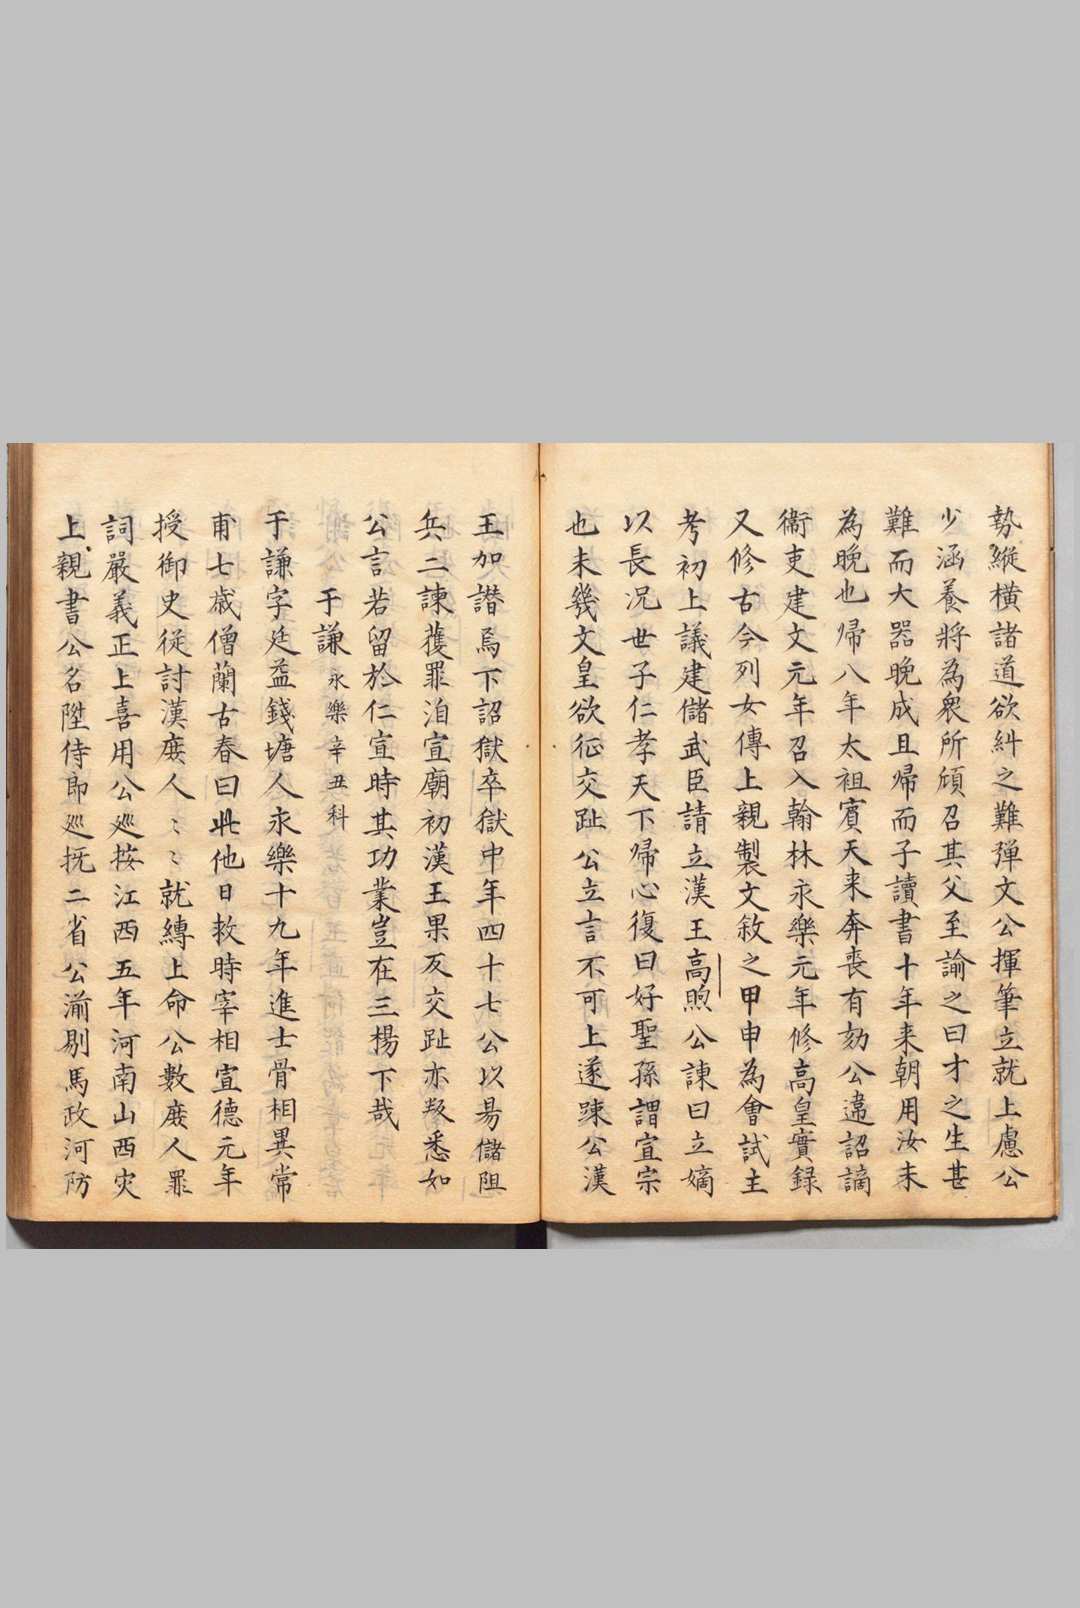 勢縱橫諸道欲糾之難弾文公揮筆立就上慮公
少涵養將為衆所傾召其父至諭之曰才之生甚
難而大器晚成且帰而子讀書十年来朝用汝未
為晚也帰八年太祖賓天来奔喪有劾公違詔謫
衞吏建文元年召入翰林永樂元年修高皇實録
又修古今列女傳上親製文敘之甲申為會試主
考初上議建儲武臣請立漢王高煦公諫曰立嫡
以長况世子仁孝天下帰心復曰好聖孫謂宣宗
也未幾文皇欲征交趾公立言不可上遂踈公漢
王加譖焉下詔獄卒獄中年四十七公以易儲阻
兵二諫獲罪洎宣廟初漢王果反交趾亦叛悉如
公言若留於仁宣時其功業豈在三楊下哉
于謙 永樂辛丑科
于謙字廷益錢塘人永樂十九年進士骨相異常
甫七歲僧蘭古春曰此他日救時宰相宣德元年
授御史從討漢庻人〻〻就縛上命公數庻人罪
詞嚴義正上喜用公巡按江西五年河南山西灾
上親書公名陞侍郎巡抚二省公湔剔馬政河防